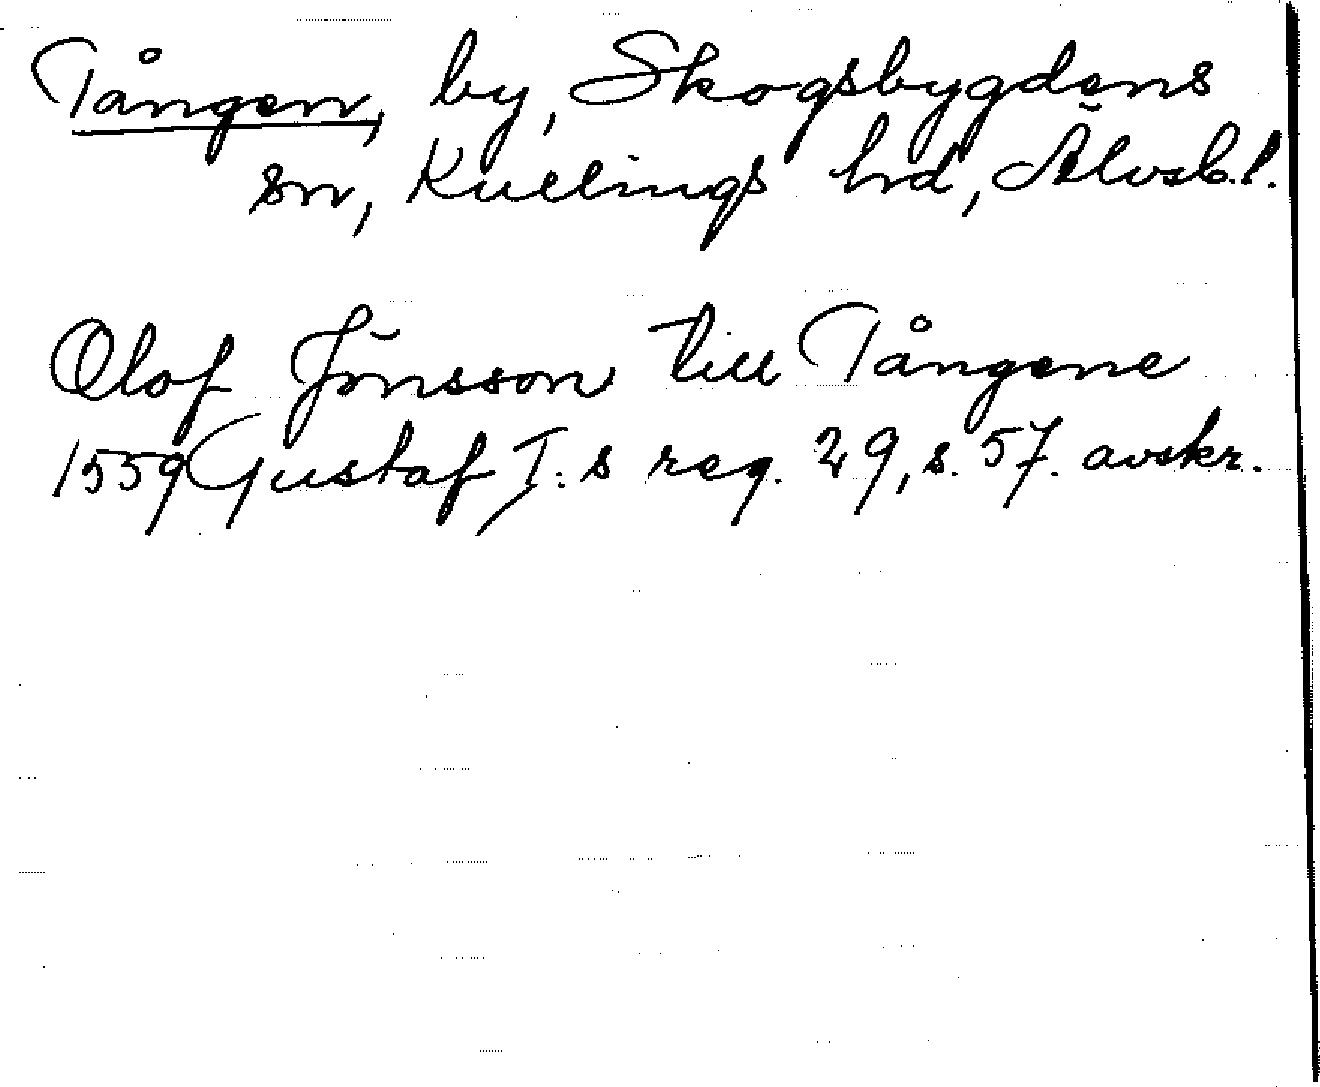 Tången, by, Skogsbygdens
sn, Kullings hd, Älvsb.l.
Olof Jönsson till Tångene
1559 Gustaf I:s reg. 29, s. 57. avskr.